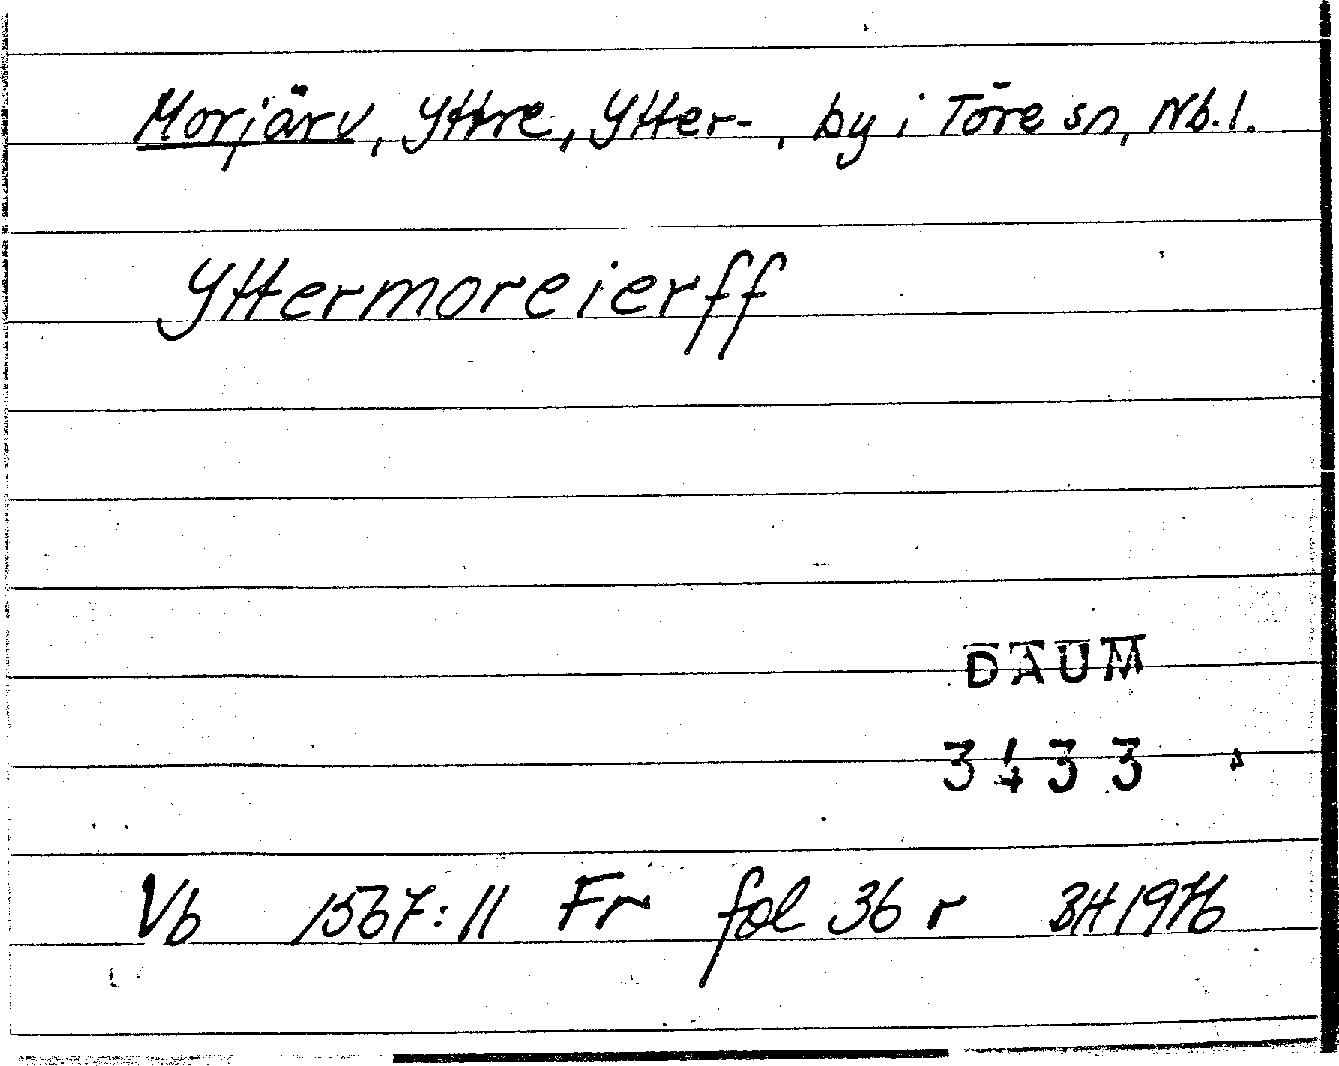 Morjärv, Yttre, Ytter-, by i Töre sn, Nb. l.
Yttermoreierff
DAUM
3433
Vb 1567:11 Fr fol 36 r BH 1976